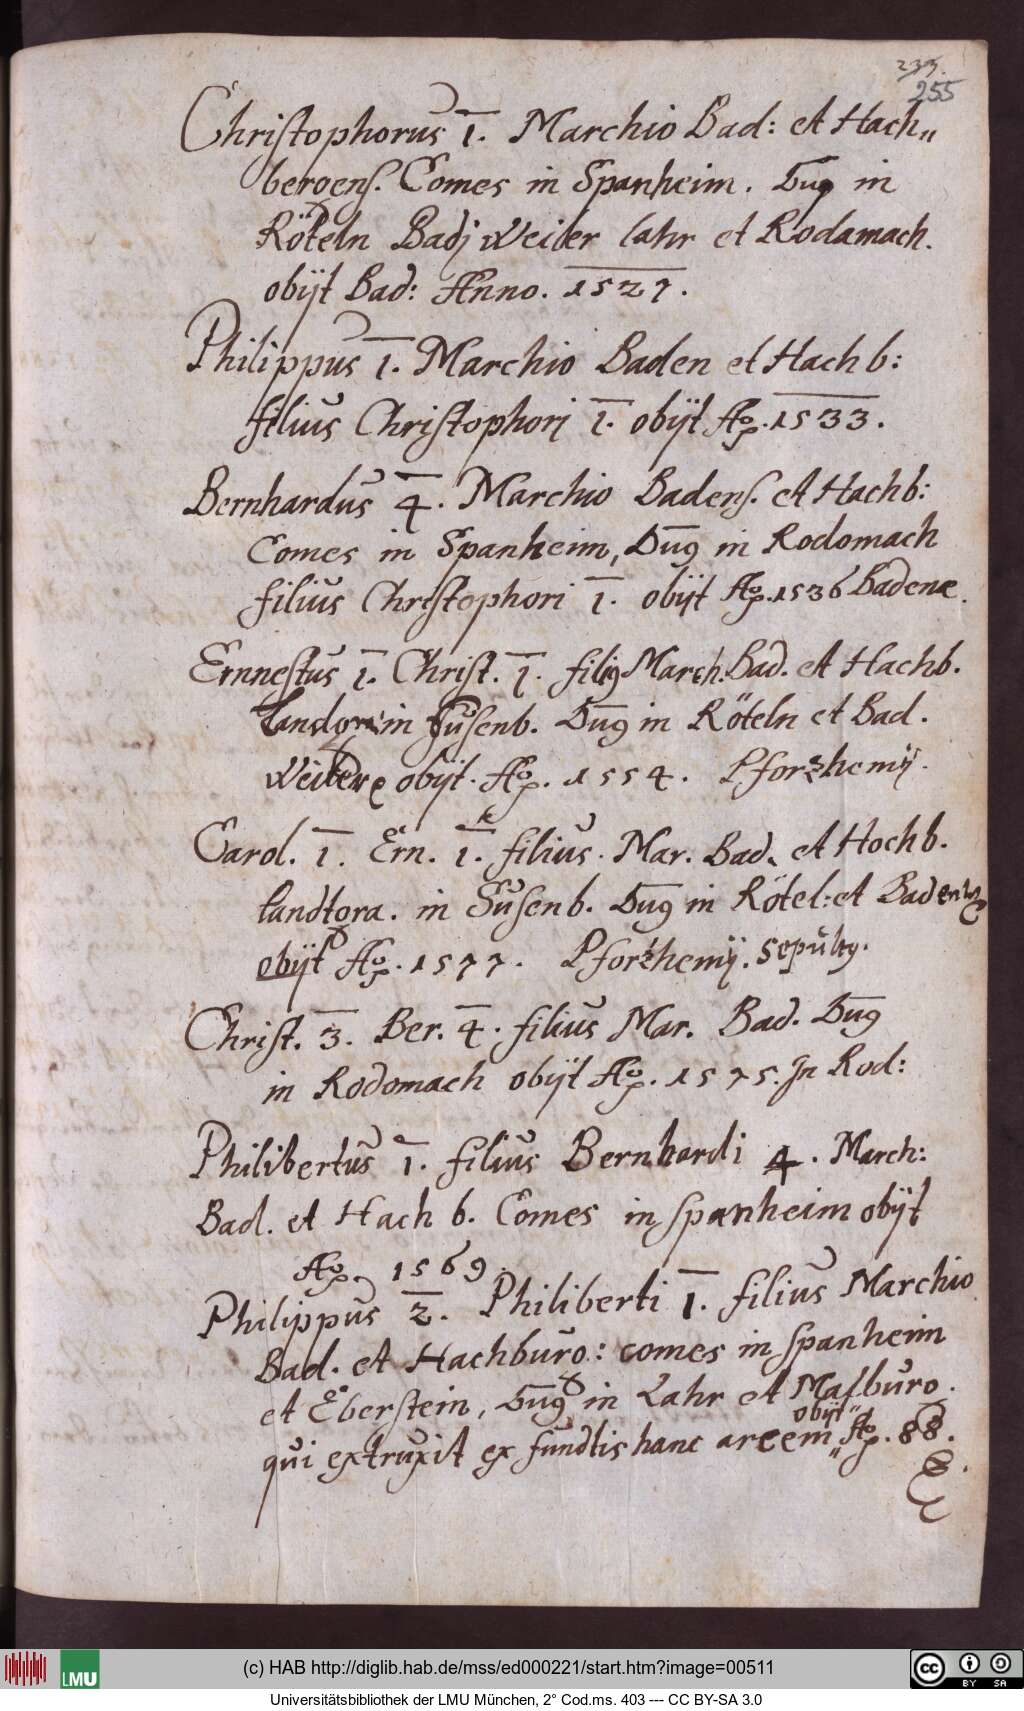 233.
255
Christophorus 1. Marchio Bad: et Hach„
bergens. Comes in Spanheim. Dn͞s in
Röteln Badj Weiler Lahr et Rodamach.
obijt Bad: Anno. 1527.
Philippus 1. Marchio Baden et Hach b:
filius Christophorj 1. obijt Ao. 1533.
Bernhardus 4. Marchio Badens. et Hachb:
Comes in Spanheim, Dn͞s in Rodomach
filius Christophori 1. obijt Ao. 1536 Badenæ.
Ernnestus 1. Christ. 1. filius March. Bad. et Hachb.
Landgra: in Susenb. Dn͞s in Röteln et Bad.
Weiler obijt. Ao. 1554. Pforzhemij.
Carol. 1. Ern. 1. filius. Mar. Bad. et Hochb.
landtgra. in Susenb. Dn͞s in Rötel: et Badenw
obijt Ao. 1577. Pforzhemij. sepultus.
Christ. 3. Ber. 4. filius Mar. Bad. Dn͞s
in Rodomach obijt Ao. 1575. In Rod:
Philibertus 1. filius Bernhardi 4. March:
Bad. et Hach b. Comes in spanheim obijt
Ao. 1569.
Philippus 2. Philiberti 1. filius Marchio
Bad. et Hachburg: comes in spanheim
et Eberstein, Dn͞s in Lahr et Malburg.
qui extruxit ex fundtis hanc arcem„ obijt„ Ao. 88.
(c) HAB http://diglib.hab.de/mss/ed000221/start.htm?image=00511
LMU
cc BY SA
Universitätsbibliothek der LMU München, 2° Cod.ms. 403 --- CC BY-SA 3.0